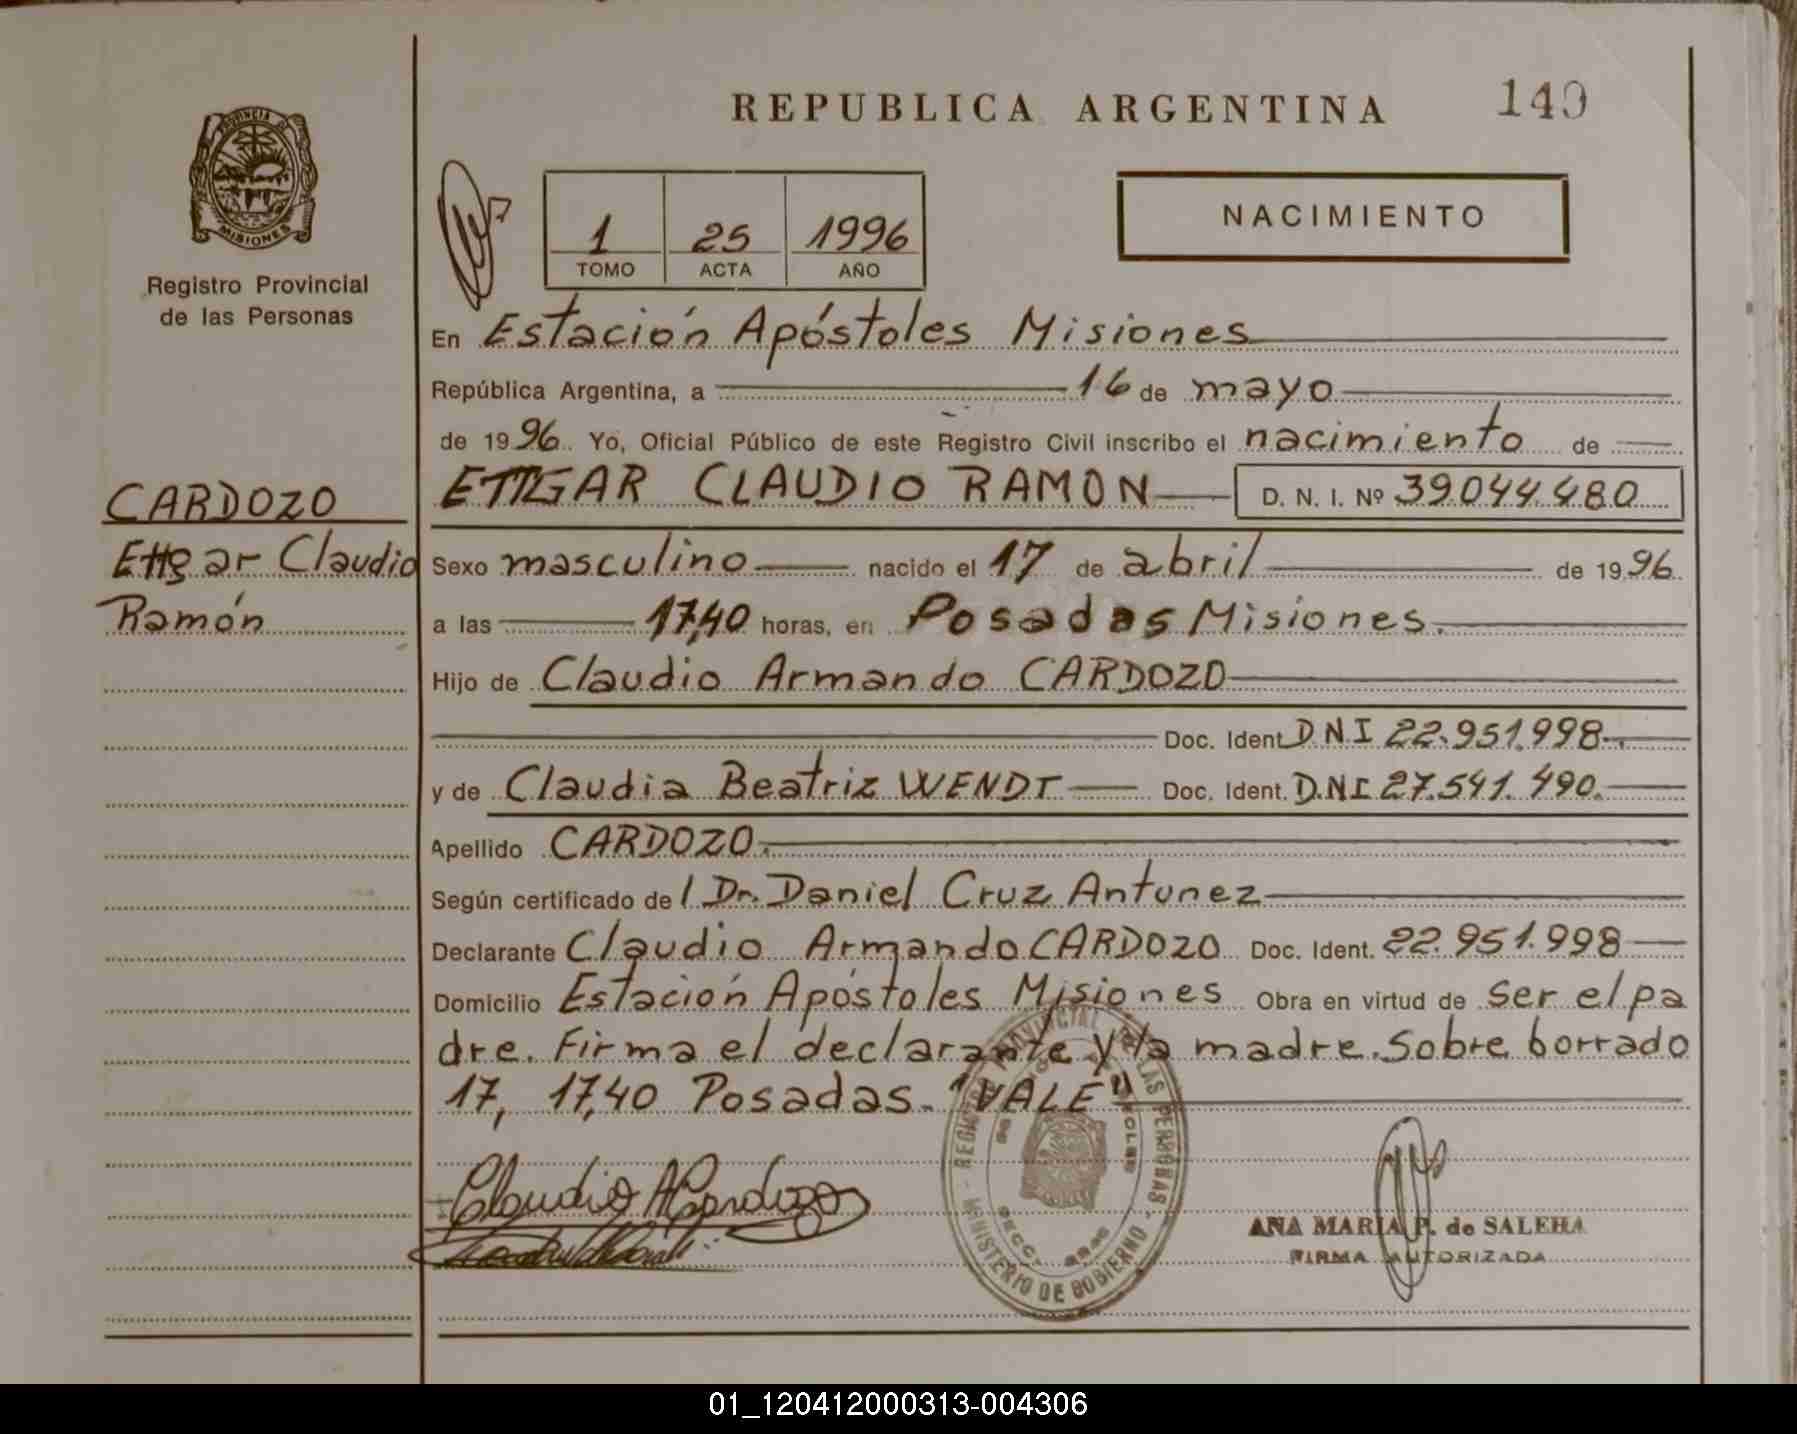 REPUBLICA ARGENTINA 140
PROVINCIA DE
MISIONES
Registro Provincial
de las Personas
1 25 1996
TOMO ACTA AÑO
NACIMIENTO
En Estación Apóstoles Misiones
República Argentina, a 16 de mayo
de 1996. Yo, Oficial Público de este Registro Civil inscribo el nacimiento de
ETTGAR CLAUDIO RAMON D. N. I. Nº 39.044.480
CARDOZO
Ettgar Claudio
Ramón
Sexo masculino nacido el 17 de abril de 1996
a las 17,40 horas, en Posadas Misiones.
Hijo de Claudio Armando CARDOZO
Doc. Ident. D.N.I 22.951.998.
y de Claudia Beatriz WENDT Doc. Ident. D.N.I 27.541.490.
Apellido CARDOZO.
Según certificado del Dr. Daniel Cruz Antunez
Declarante Claudio Armando CARDOZO Doc. Ident. 22.951.998
Domicilio Estación Apóstoles Misiones Obra en virtud de ser el pa
dre. Firma el declarante y la madre. Sobre borrado
17, 17,40 Posadas. "VALE"
Claudio A Cardozo
REGISTRO PROVINCIAL DE LAS PERSONAS - MINISTERIO DE GOBIERNO -
ANA MARIA P. de SALEHA
FIRMA AUTORIZADA
01_120412000313-004306